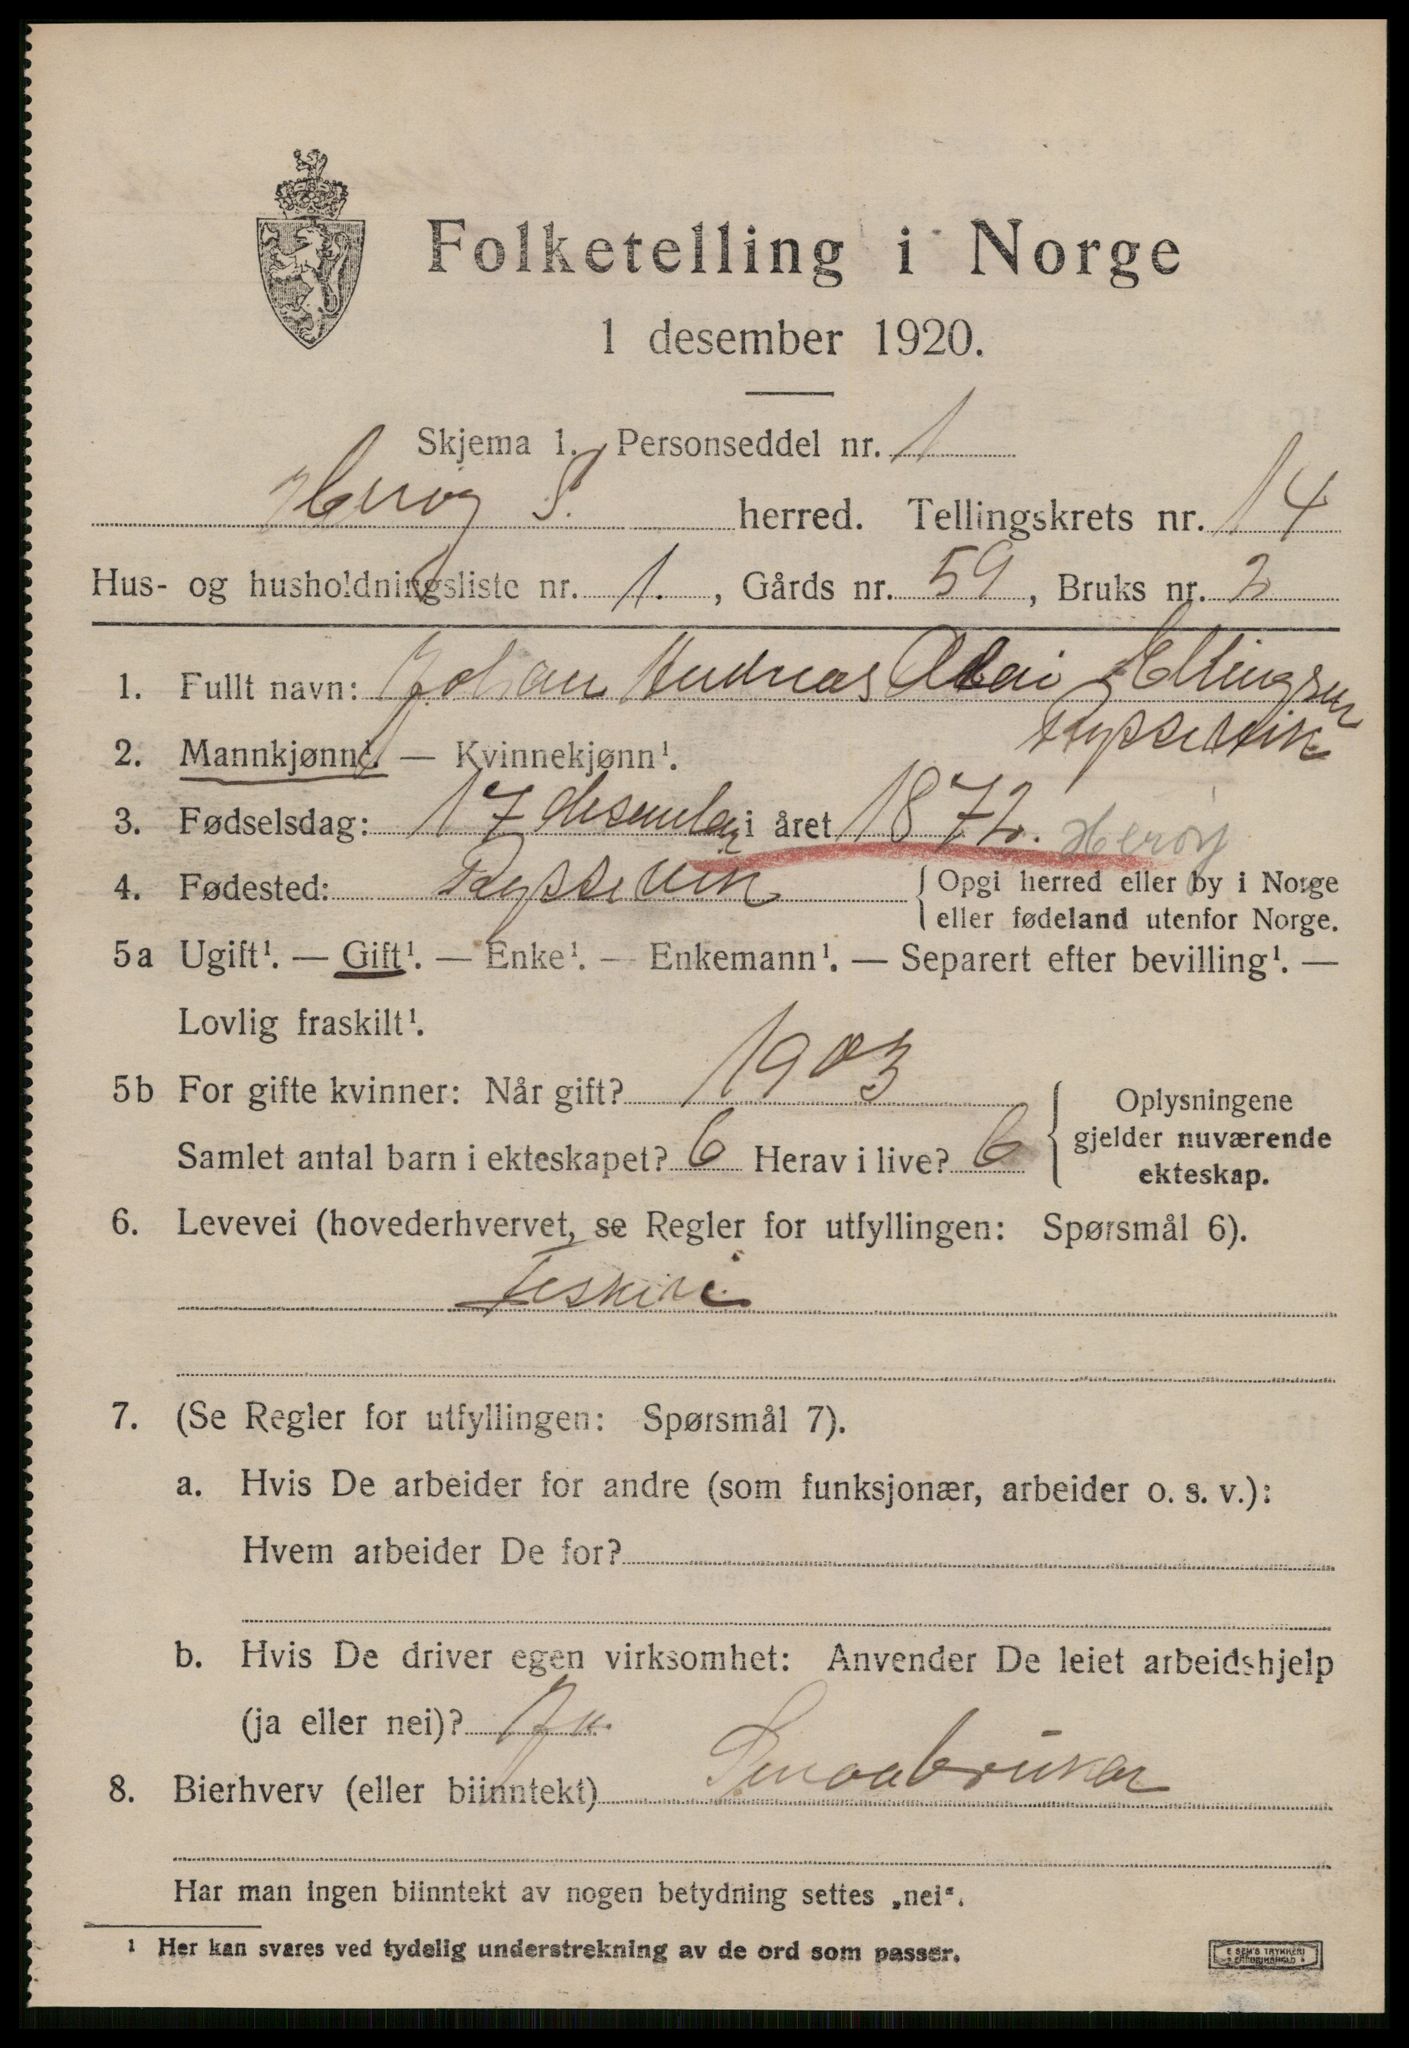 Folketelling i Norge
1 desember 1920.
Skjema 1. Personseddel nr. 1
Herøy S. herred. Tellingskrets nr. 14
Hus- og husholdningsliste nr. 1. , Gårds nr. 59 , Bruks nr. 2
1. Fullt navn: Johan Andreas Ellingsen
2. Mannkjønn¹. — Kvinnekjønn¹.
3. Fødselsdag: 17 desember i året 1872. Herøy
4. Fødested: { Opgi herred eller by i Norge
eller fødeland utenfor Norge.
5a Ugift¹. — Gift¹. — Enke¹. — Enkemann¹. — Separert efter bevilling¹. —
Lovlig fraskilt¹.
5b For gifte kvinner: Når gift? 1903
Samlet antal barn i ekteskapet? 6 Herav i live? 6
Oplysningene
gjelder nuværende
ekteskap.
6. Levevei (hovederhvervet, se Regler for utfyllingen: Spørsmål 6).
Feskeri
7. (Se Regler for utfyllingen: Spørsmål 7).
a. Hvis De arbeider for andre (som funksjonær, arbeider o. s. v.):
Hvem arbeider De for?
b. Hvis De driver egen virksomhet: Anvender De leiet arbeidshjelp
(ja eller nei)? Ja.
8. Bierhverv (eller biinntekt) Smaabruker
Har man ingen biinntekt av nogen betydning settes „nei“.
¹ Her kan svares ved tydelig understrekning av de ord som passer.
E SEM'S TRYKKERI